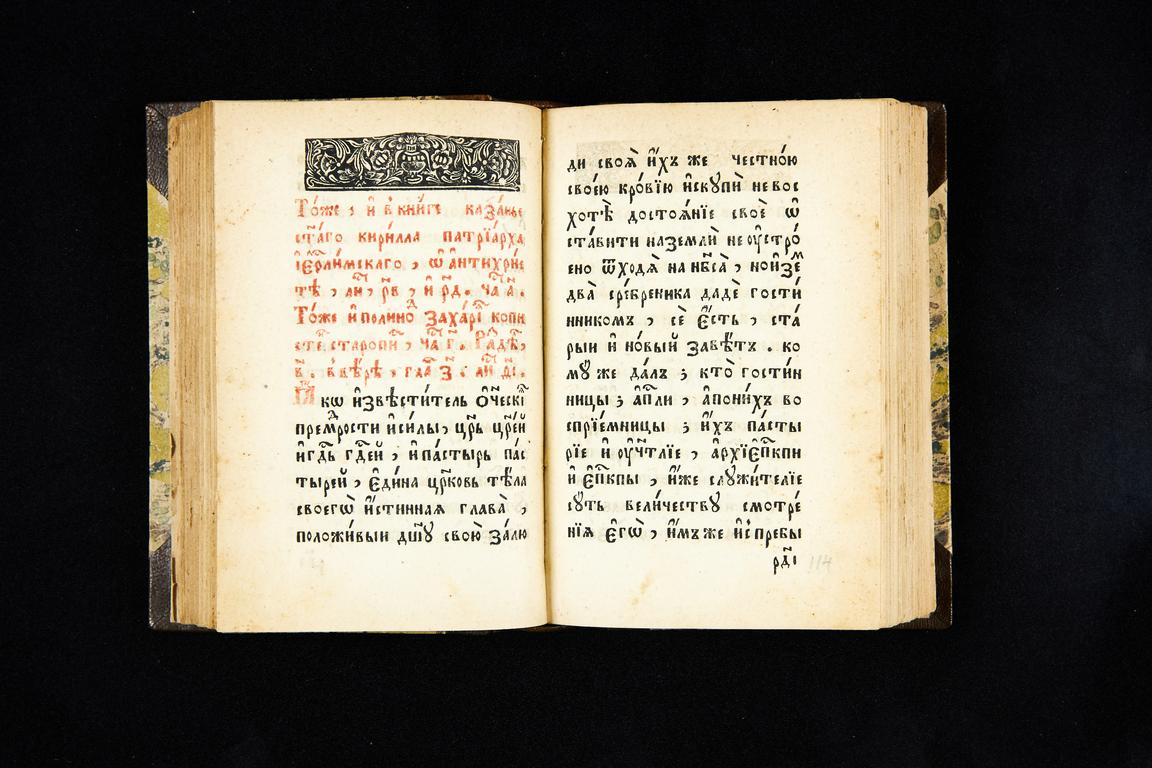 То́же , и҆ в̾кни́ге каза́нье
ст҃а́го кири́лла патрїа́рха
і҆ерⷭ҇ли́мскаго , ѡ҆ а҆нтихри́с
тѣ̀ , лиⷭ҇ , р҃в , и҆ р҃д . чаⷭ҇ а҃ .
То́же и҆полиноⷣ Заха́рїⷤ копи
сте́нстаропиⷤ , чаⷭ҇ г҃ . Раⷥдѣ́ ,
в҃ . в̾вѣ́рѣ , глаⷡ҇ з҃ . лиⷭ҇ д҃і .
Ꙗ҆́кѡ и҆звѣсти́тель ѻ҆ч҃ескїⷯ
премⷣрости и҆си́лы , цр҃ь цр҃е́й
и҆гдⷭ҇ь гдⷭ҇ей , и҆па́стырь па́с
тырей , є҆ди́на цр҃ковь тѣ́ла
своегѡ̀ и҆́стинная глава̀ ,
положи́выи дш҃ꙋ свою̀ за́лю
ди своѧ̀ и҆́хъ же честно́ю
свое́ю кро́вїю и҆скꙋпѝ не вос
хотѣ̀ достоѧ́нїе своѐ ѡ҆
ста́вити наземлѝ не ᲂу҆стро́
ено ѿходѧ̀ на нб҃са̀ , ноизеⷨ
два̀ сре́бреника дадѐ гости́
нникомъ , сѐ є҆́сть , ста́
рыи и҆ но́вый завѣ́тъ . ко
мꙋ́ же да́лъ ; кто̀ гости́н
ницы ; а҆пⷭ҇ли , а҆пони́хъ во
спрїе́мницы ; и҆́хъ па́сты
рїе и҆ ᲂу҆чт҃лїе , а҆рхїе҆пⷭ҇кпи
и҆ є҆пⷭ҇кпы , и҆́же слꙋжи́телїе
сꙋ́ть вели́чествꙋ смотре́
нїѧ є҆гѡ̀ , и҆́мъже и҆ спребы
рд҃і 114